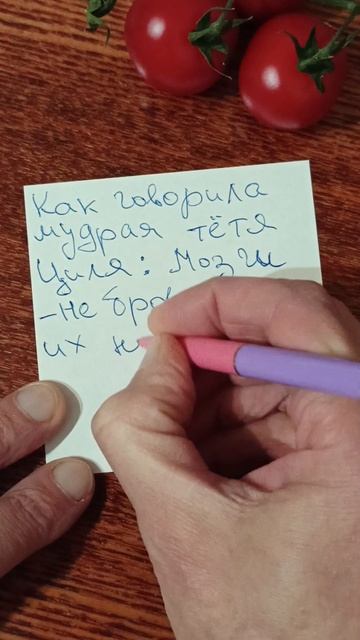 Как говорила
мудрая тётя
Циля: Мозги
-не
их н